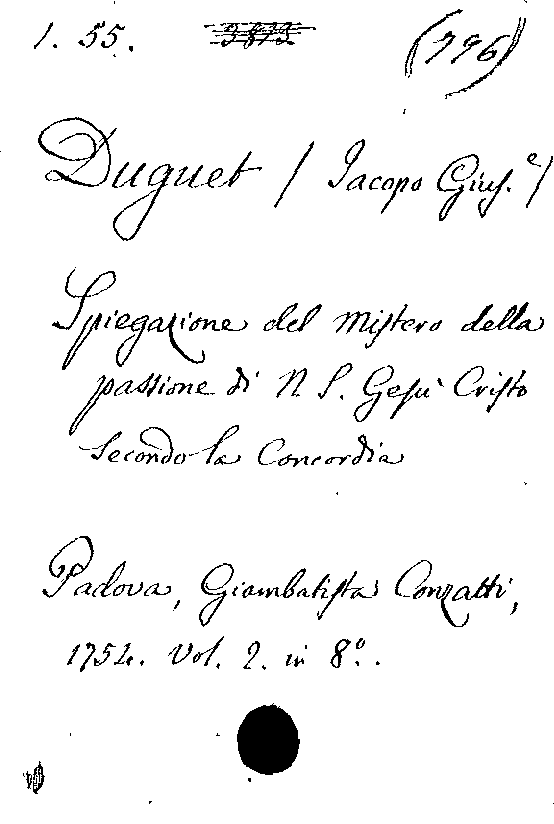 1. 55. (796)
Duguet / Jacopo Gius.e/
Spiegazione del Mistero della
passione di N. S. Gesù Cristo
secondo la Concordia
Padova, Giambatista Conzatti,
1754. Vol. 2. in 8º.